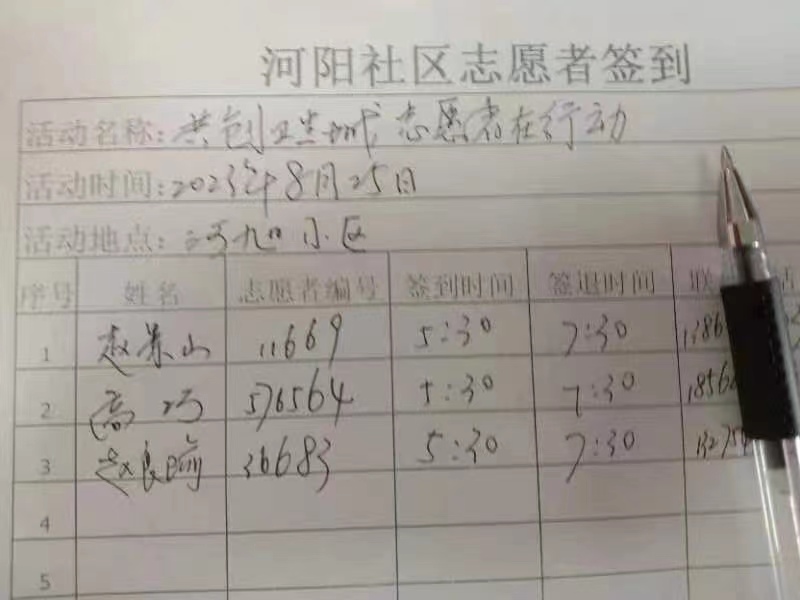 河阳社区志愿者签到
活动名称:共创卫生城 志愿者在行动
活动时间:2023年8月25日
活动地点: 小区
序号 姓名 志愿者编号 签到时间 签退时间 联
1 赵景山 11669 5:30 7:30
2 高巧 576564 5:30 7:30
3 赵良 36683 5:30 7:30
4
5